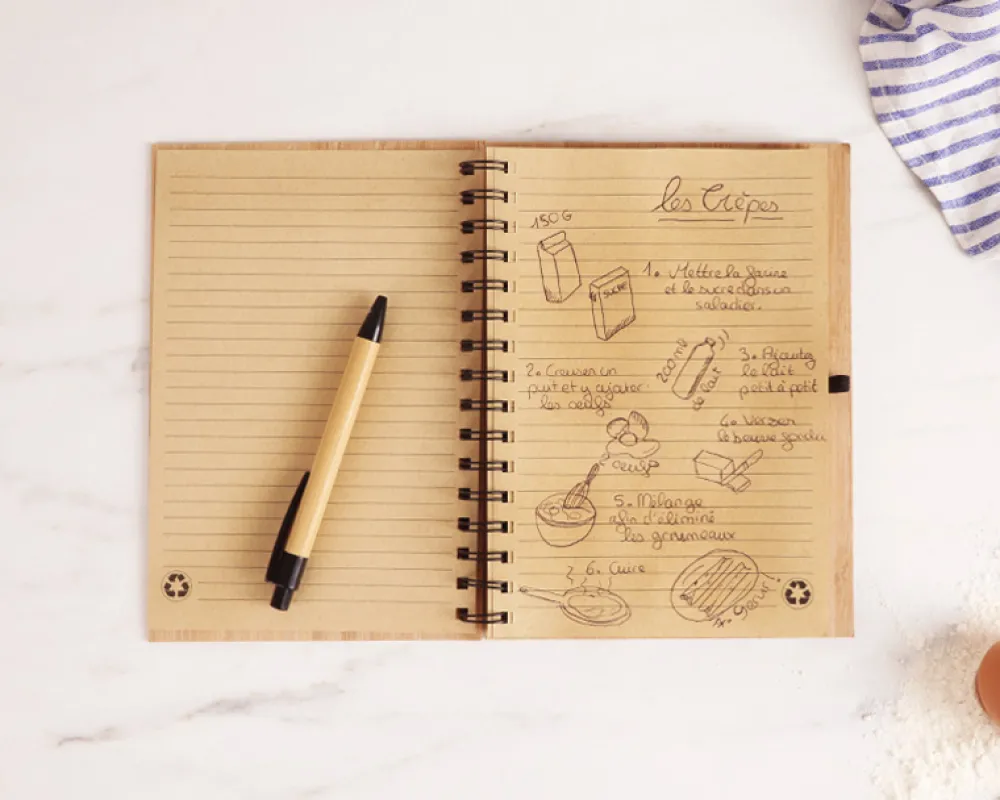 les Crêpes
150G
SUCRE
1. Mettre la farine
et le sucre dans un
saladier.
2. Creuser un
puit et y ajouter
les oeufs
200 ml
de lait
3. Ajoutez
le lait
petit à petit
4. Verser
le beurre fondu
oeufs
5. Mélange
afin d'éliminé
les grumeaux
6. Cuire
Servir.